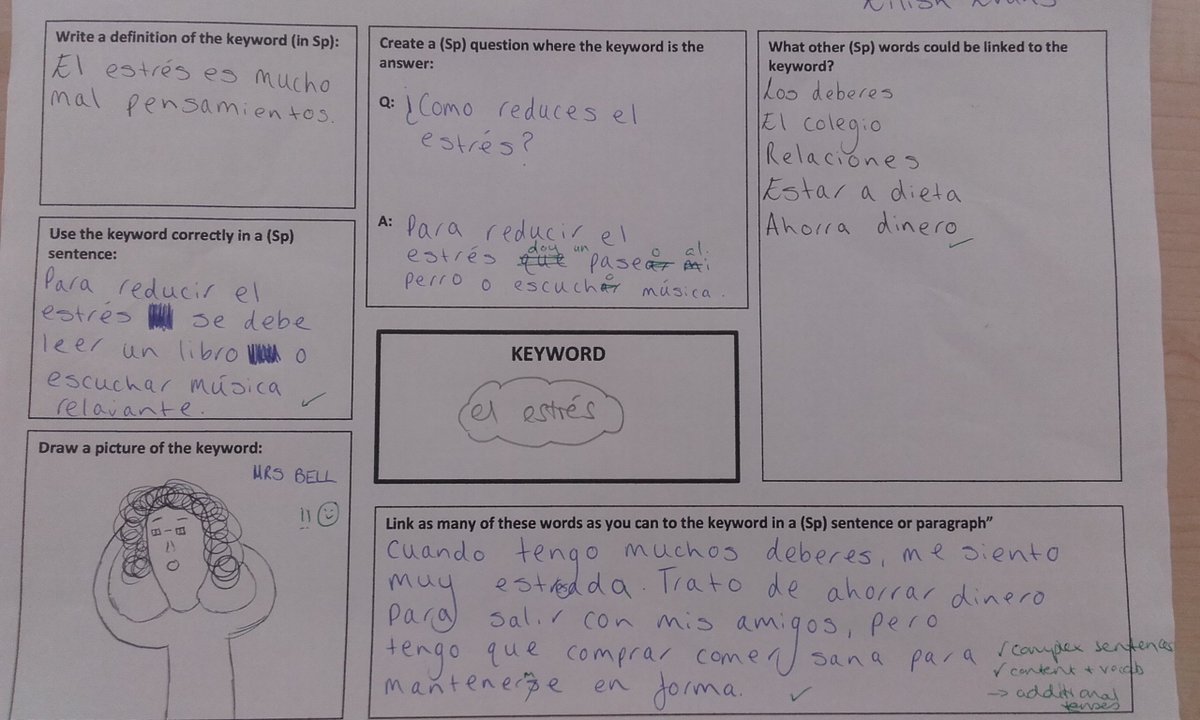 Write a definition of the keyword (in Sp):
El estrés es mucho
mal pensamientos.
Create a (Sp) question where the keyword is the
answer:
Q: ¿Como reduces el
estrés?
A: Para reducir el
doy un o al.
estrés que pasear mi
o
perro o escuchar música.
What other (Sp) words could be linked to the
keyword?
Los deberes
El colegio
Relaciones
Estar a dieta
Ahorra dinero
Use the keyword correctly in a (Sp)
sentence:
Para reducir el
estrés se debe
leer un libro o
escuchar música
relajante.
KEYWORD
el estrés
Draw a picture of the keyword:
MRS BELL
!!
Link as many of these words as you can to the keyword in a (Sp) sentence or paragraph"
Cuando tengo muchos deberes, me siento
muy estresada. Trato de ahorrar dinero
para salir con mis amigos, pero
tengo que comprar comer sana para
mantenerme en forma.
✓ complex sentences
✓ content + vocab
→ additional
tenses